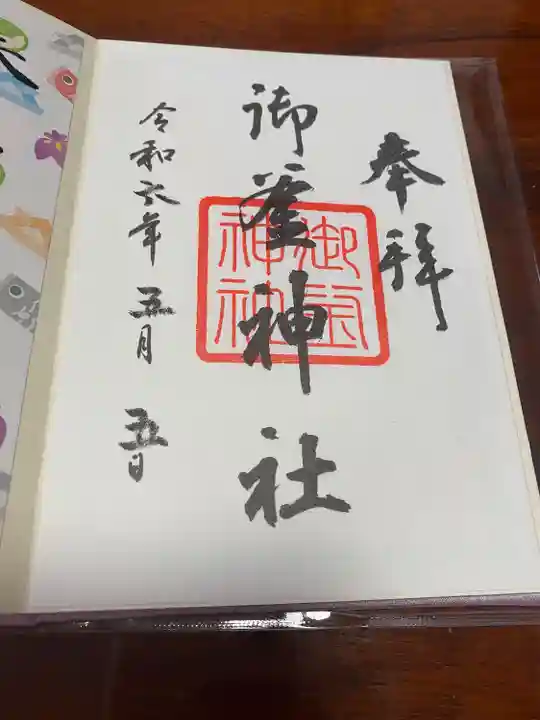 奉拝
御釜神社
御釜
神社
令和六年五月五日